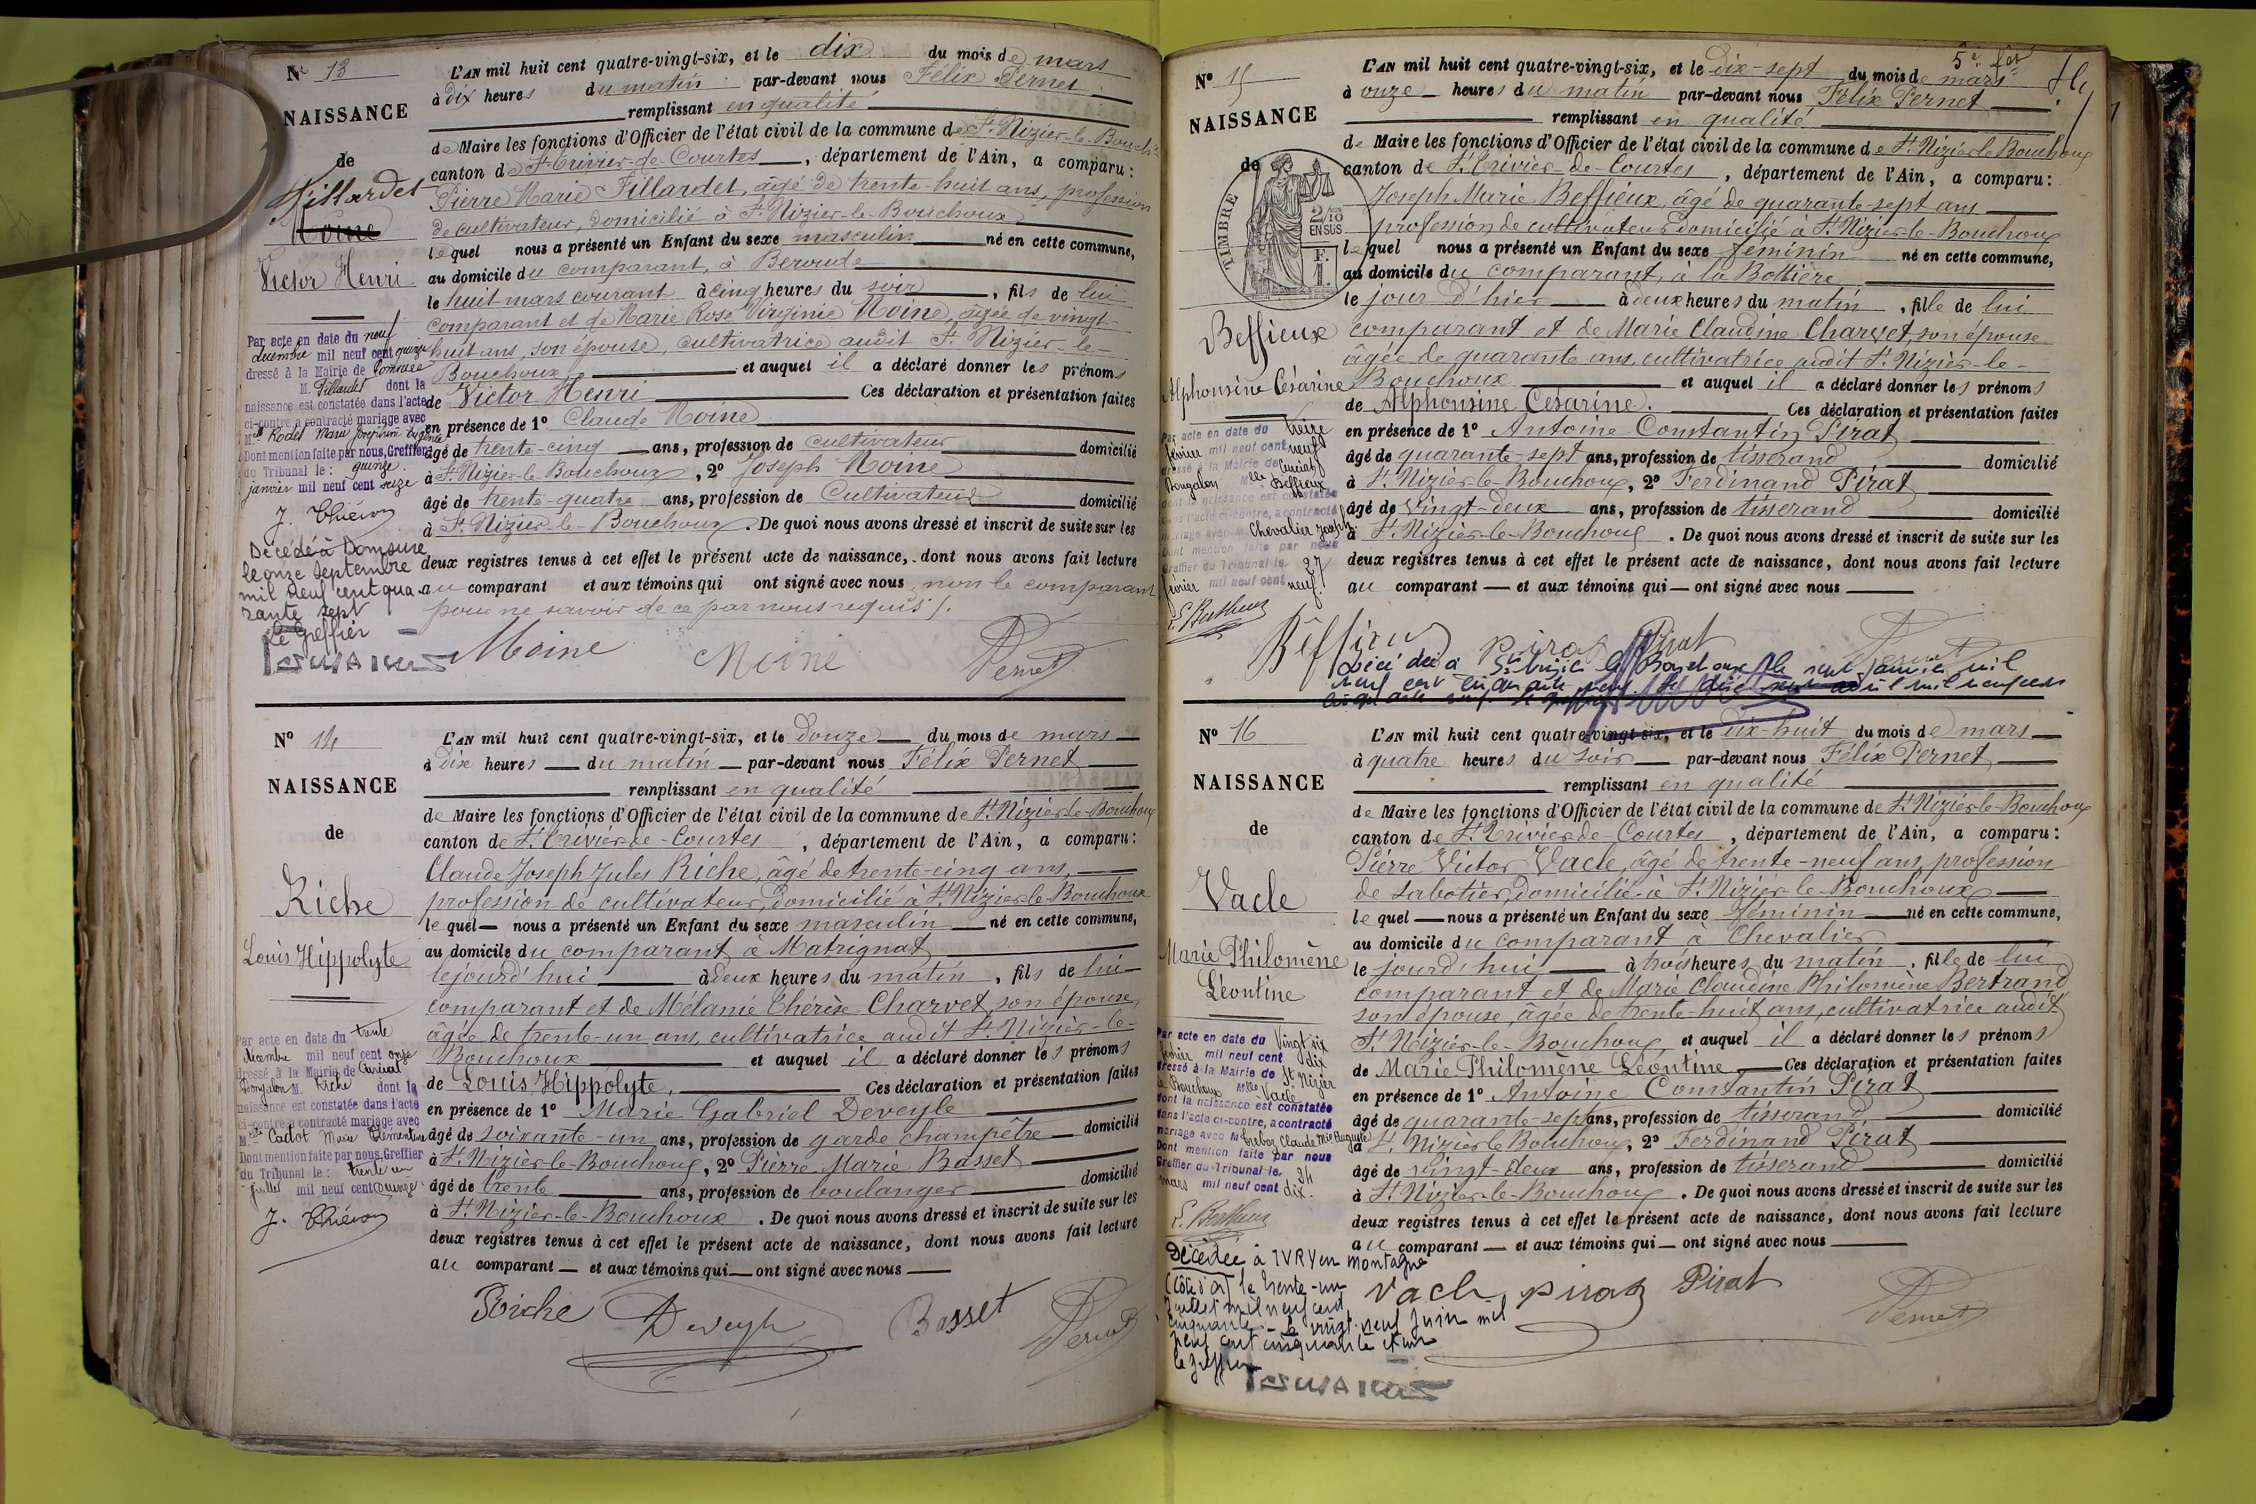 N° 13
NAISSANCE
de
Fillardet
Moine
Victor Henri
L'AN mil huit cent quatre-vingt-six, et le dix du mois de mars
à dix heures du matin par-devant nous Félix Pernet
remplissant en qualité
de Maire les fonctions d'Officier de l'état civil de la commune de St Nizier-le-Bouch
canton de St Trivier-de-Courtes, département de l'Ain, a comparu:
Pierre Marie Fillardet, âgé de trente-huit ans, profession
de cultivateur, domicilié à St Nizier-le-Bouchoux
le quel nous a présenté un Enfant du sexe masculin né en cette commune,
au domicile du comparant, à Beroude
le huit mars courant à cinq heures du soir, fils de lui
comparant et de Marie Rose Virginie Moine, âgée de vingt-
huit ans, son épouse, cultivatrice audit St Nizier-le-
Bouchoux et auquel il a déclaré donner les prénoms
de Victor Henri Ces déclaration et présentation faites
en présence de 1° Claude Moine
âgé de trente-cinq ans, profession de cultivateur domicilié
à St Nizier-le-Bouchoux, 2° Joseph Moine
âgé de trente-quatre ans, profession de Cultivateur domicilié
à St Nizier-le-Bouchoux. De quoi nous avons dressé et inscrit de suite sur les
deux registres tenus à cet effet le présent acte de naissance, dont nous avons fait lecture
au comparant et aux témoins qui ont signé avec nous, non le comparant
pour ne savoir de ce par nous requis /.
Moine Moine Pernet
Par acte en date du neuf
décembre mil neuf cent quinze
dressé à la Mairie de Domsure
M. Fillardet dont la
naissance est constatée dans l'acte
ci-contre a contracté mariage avec
Mlle Rodet Marie Joséphine Eugénie
Dont mention faite par nous, Greffier
du Tribunal le: quinze
janvier mil neuf cent seize
J. Thiévon
Décédé à Domsure
le onze septembre
mil neuf cent qua-
rante sept
Le Greffier
N° 14
NAISSANCE
de
Riche
Louis Hippolyte
L'AN mil huit cent quatre-vingt-six, et le douze du mois de mars
à dix heures du matin par-devant nous Félix Pernet
remplissant en qualité
de Maire les fonctions d'Officier de l'état civil de la commune de St Nizier-le-Bouchoux
canton de St Trivier-de-Courtes, département de l'Ain, a comparu:
Claude Joseph Jules Riche, âgé de trente-cinq ans,
profession de cultivateur, domicilié à St Nizier-le-Bouchoux
le quel nous a présenté un Enfant du sexe masculin né en cette commune,
au domicile du comparant à Matrignat
le jourd'hui à deux heures du matin, fils de lui
comparant et de Mélanie Thérèse Charvet, son épouse,
âgée de trente-un ans, cultivatrice audit St Nizier-le-
Bouchoux et auquel il a déclaré donner les prénoms
de Louis Hippolyte, Ces déclaration et présentation faites
en présence de 1° Marie Gabriel Deveyle
âgé de soixante-un ans, profession de garde champêtre domicilié
à St Nizier-le-Bouchoux, 2° Pierre Marie Basset
âgé de trente ans, profession de boulanger domicilié
à St Nizier-le-Bouchoux. De quoi nous avons dressé et inscrit de suite sur les
deux registres tenus à cet effet le présent acte de naissance, dont nous avons fait lecture
au comparant et aux témoins qui ont signé avec nous
Riche Deveyle Basset Pernet
Par acte en date du trente
décembre mil neuf cent onze
dressé à la Mairie de Curciat
Dongalon M. Riche dont la
naissance est constatée dans l'acte
ci-contre a contracté mariage avec
Mlle Cadot Marie Clémentine
Dont mention faite par nous, Greffier
du Tribunal le: trente un
juillet mil neuf cent quinze
J. Thiévon
N° 15
NAISSANCE
de
TIMBRE
2/10
EN SUS
F.
1.
Beffieux
Alphonsine Césarine
5e fet
L'AN mil huit cent quatre-vingt-six, et le dix-sept du mois de mars
à onze heures du matin par-devant nous Félix Pernet
remplissant en qualité
de Maire les fonctions d'Officier de l'état civil de la commune de St Nizier-le-Bouchoux
canton de St Trivier-de-Courtes, département de l'Ain, a comparu:
Joseph Marie Beffieux, âgé de quarante-sept ans
profession de cultivateur domicilié à St Nizier-le-Bouchoux
le quel nous a présenté un Enfant du sexe féminin né en cette commune,
au domicile du comparant, à la Bottière
le jour d'hier à deux heures du matin, fille de lui
comparant et de Marie Claudine Charvet, son épouse
âgée de quarante ans, cultivatrice audit St Nizier-le-
Bouchoux et auquel il a déclaré donner les prénoms
de Alphonsine Césarine. Ces déclaration et présentation faites
en présence de 1° Antoine Constantin Pirat
âgé de quarante-sept ans, profession de tisserand domicilié
à St Nizier-le-Bouchoux, 2° Ferdinand Pirat
âgé de vingt-deux ans, profession de tisserand domicilié
à St Nizier-le-Bouchoux. De quoi nous avons dressé et inscrit de suite sur les
deux registres tenus à cet effet le présent acte de naissance, dont nous avons fait lecture
au comparant et aux témoins qui ont signé avec nous
Béffieux Pirat Pirat Pernet
Par acte en date du treize
février mil neuf cent neuf
dressé à la Mairie de Curciat
Dongalon Mlle Beffieux
dont la naissance est constatée
dans l'acte ci-contre, a contracté
mariage avec M. Chevalier Joseph
Dont mention faite par nous
Greffier du Tribunal le. 27
février mil neuf cent neuf.
E. Berthau
Décédée à St Nizier le Bouchoux le janvier mil
neuf cent cinquante neuf.
N° 16
NAISSANCE
de
Vacle
Marie Philomène
Léontine
L'AN mil huit cent quatre-vingt-six, et le dix-huit du mois de mars
à quatre heures du soir par-devant nous Félix Pernet
remplissant en qualité
de Maire les fonctions d'Officier de l'état civil de la commune de St Nizier-le-Bouchoux
canton de St Trivier-de-Courtes, département de l'Ain, a comparu:
Pierre Victor Vacle, âgé de trente-neuf ans, profession
de sabotier, domicilié à St Nizier-le-Bouchoux
le quel nous a présenté un Enfant du sexe féminin né en cette commune,
au domicile du comparant à Chevalier
le jourd'hui à trois heures du matin, fille de lui
comparant et de Marie Claudine Philomène Bertrand
son épouse, âgée de trente-huit ans, cultivatrice audit
St Nizier-le-Bouchoux et auquel il a déclaré donner les prénoms
de Marie Philomène Léontine, Ces déclaration et présentation faites
en présence de 1° Antoine Constantin Pirat
âgé de quarante-sept ans, profession de tisserand domicilié
à St Nizier-le-Bouchoux, 2° Ferdinand Pirat
âgé de vingt-deux ans, profession de tisserand domicilié
à St Nizier-le-Bouchoux. De quoi nous avons dressé et inscrit de suite sur les
deux registres tenus à cet effet le présent acte de naissance, dont nous avons fait lecture
au comparant et aux témoins qui ont signé avec nous
Vacle Pirat Pirat Pernet
Par acte en date du Vingt six
février mil neuf cent dix
dressé à la Mairie de St Nizier
le Bouchoux Mlle Vacle
dont la naissance est constatée
dans l'acte ci-contre, a contracté
mariage avec M Treboz Claude Mie Auguste
Dont mention faite par nous
Greffier du Tribunal le. 24
mars mil neuf cent dix.
E. Berthau
Décédée à IVRY en Montagne
(Côte d'Or) le trente-un
juillet mil neuf cent
cinquante - le vingt neuf Juin mil
neuf cent cinquante et un
le greffier